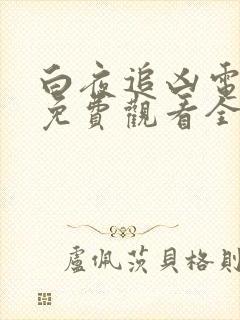 白夜追凶電
免費觀看全
盧佩茨貝格則